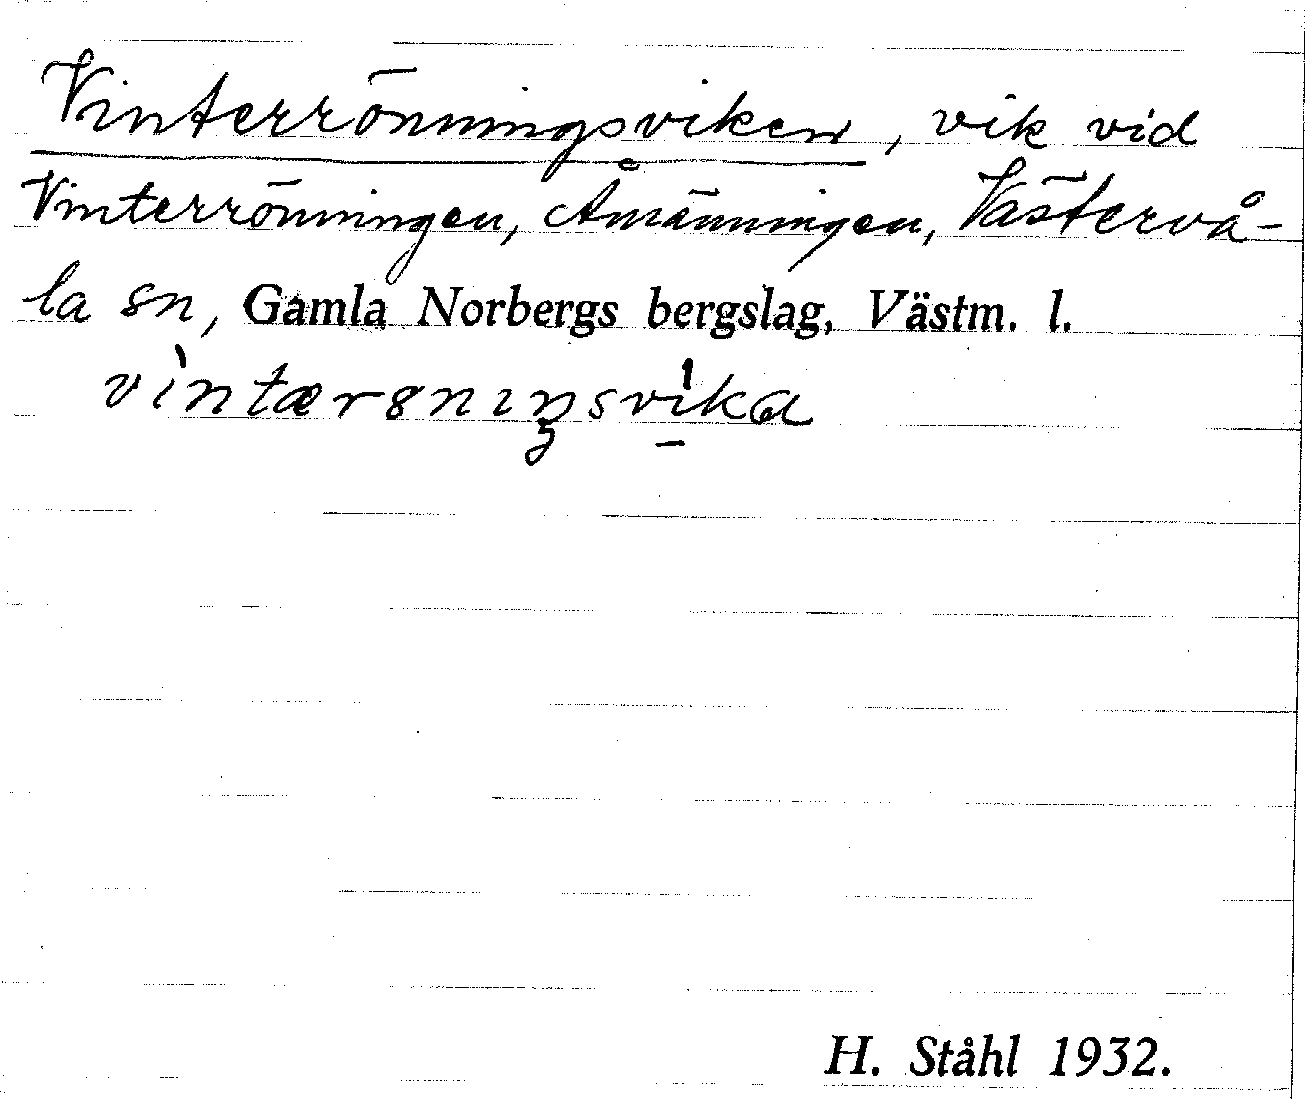 Vinterrönningsviken, vik vid
Vinterrönningen, Åmänningen, Västervå-
la sn, Gamla Norbergs bergslag, Västm. l.
vìntærөnıŋsvi̱ka
H. Ståhl 1932.